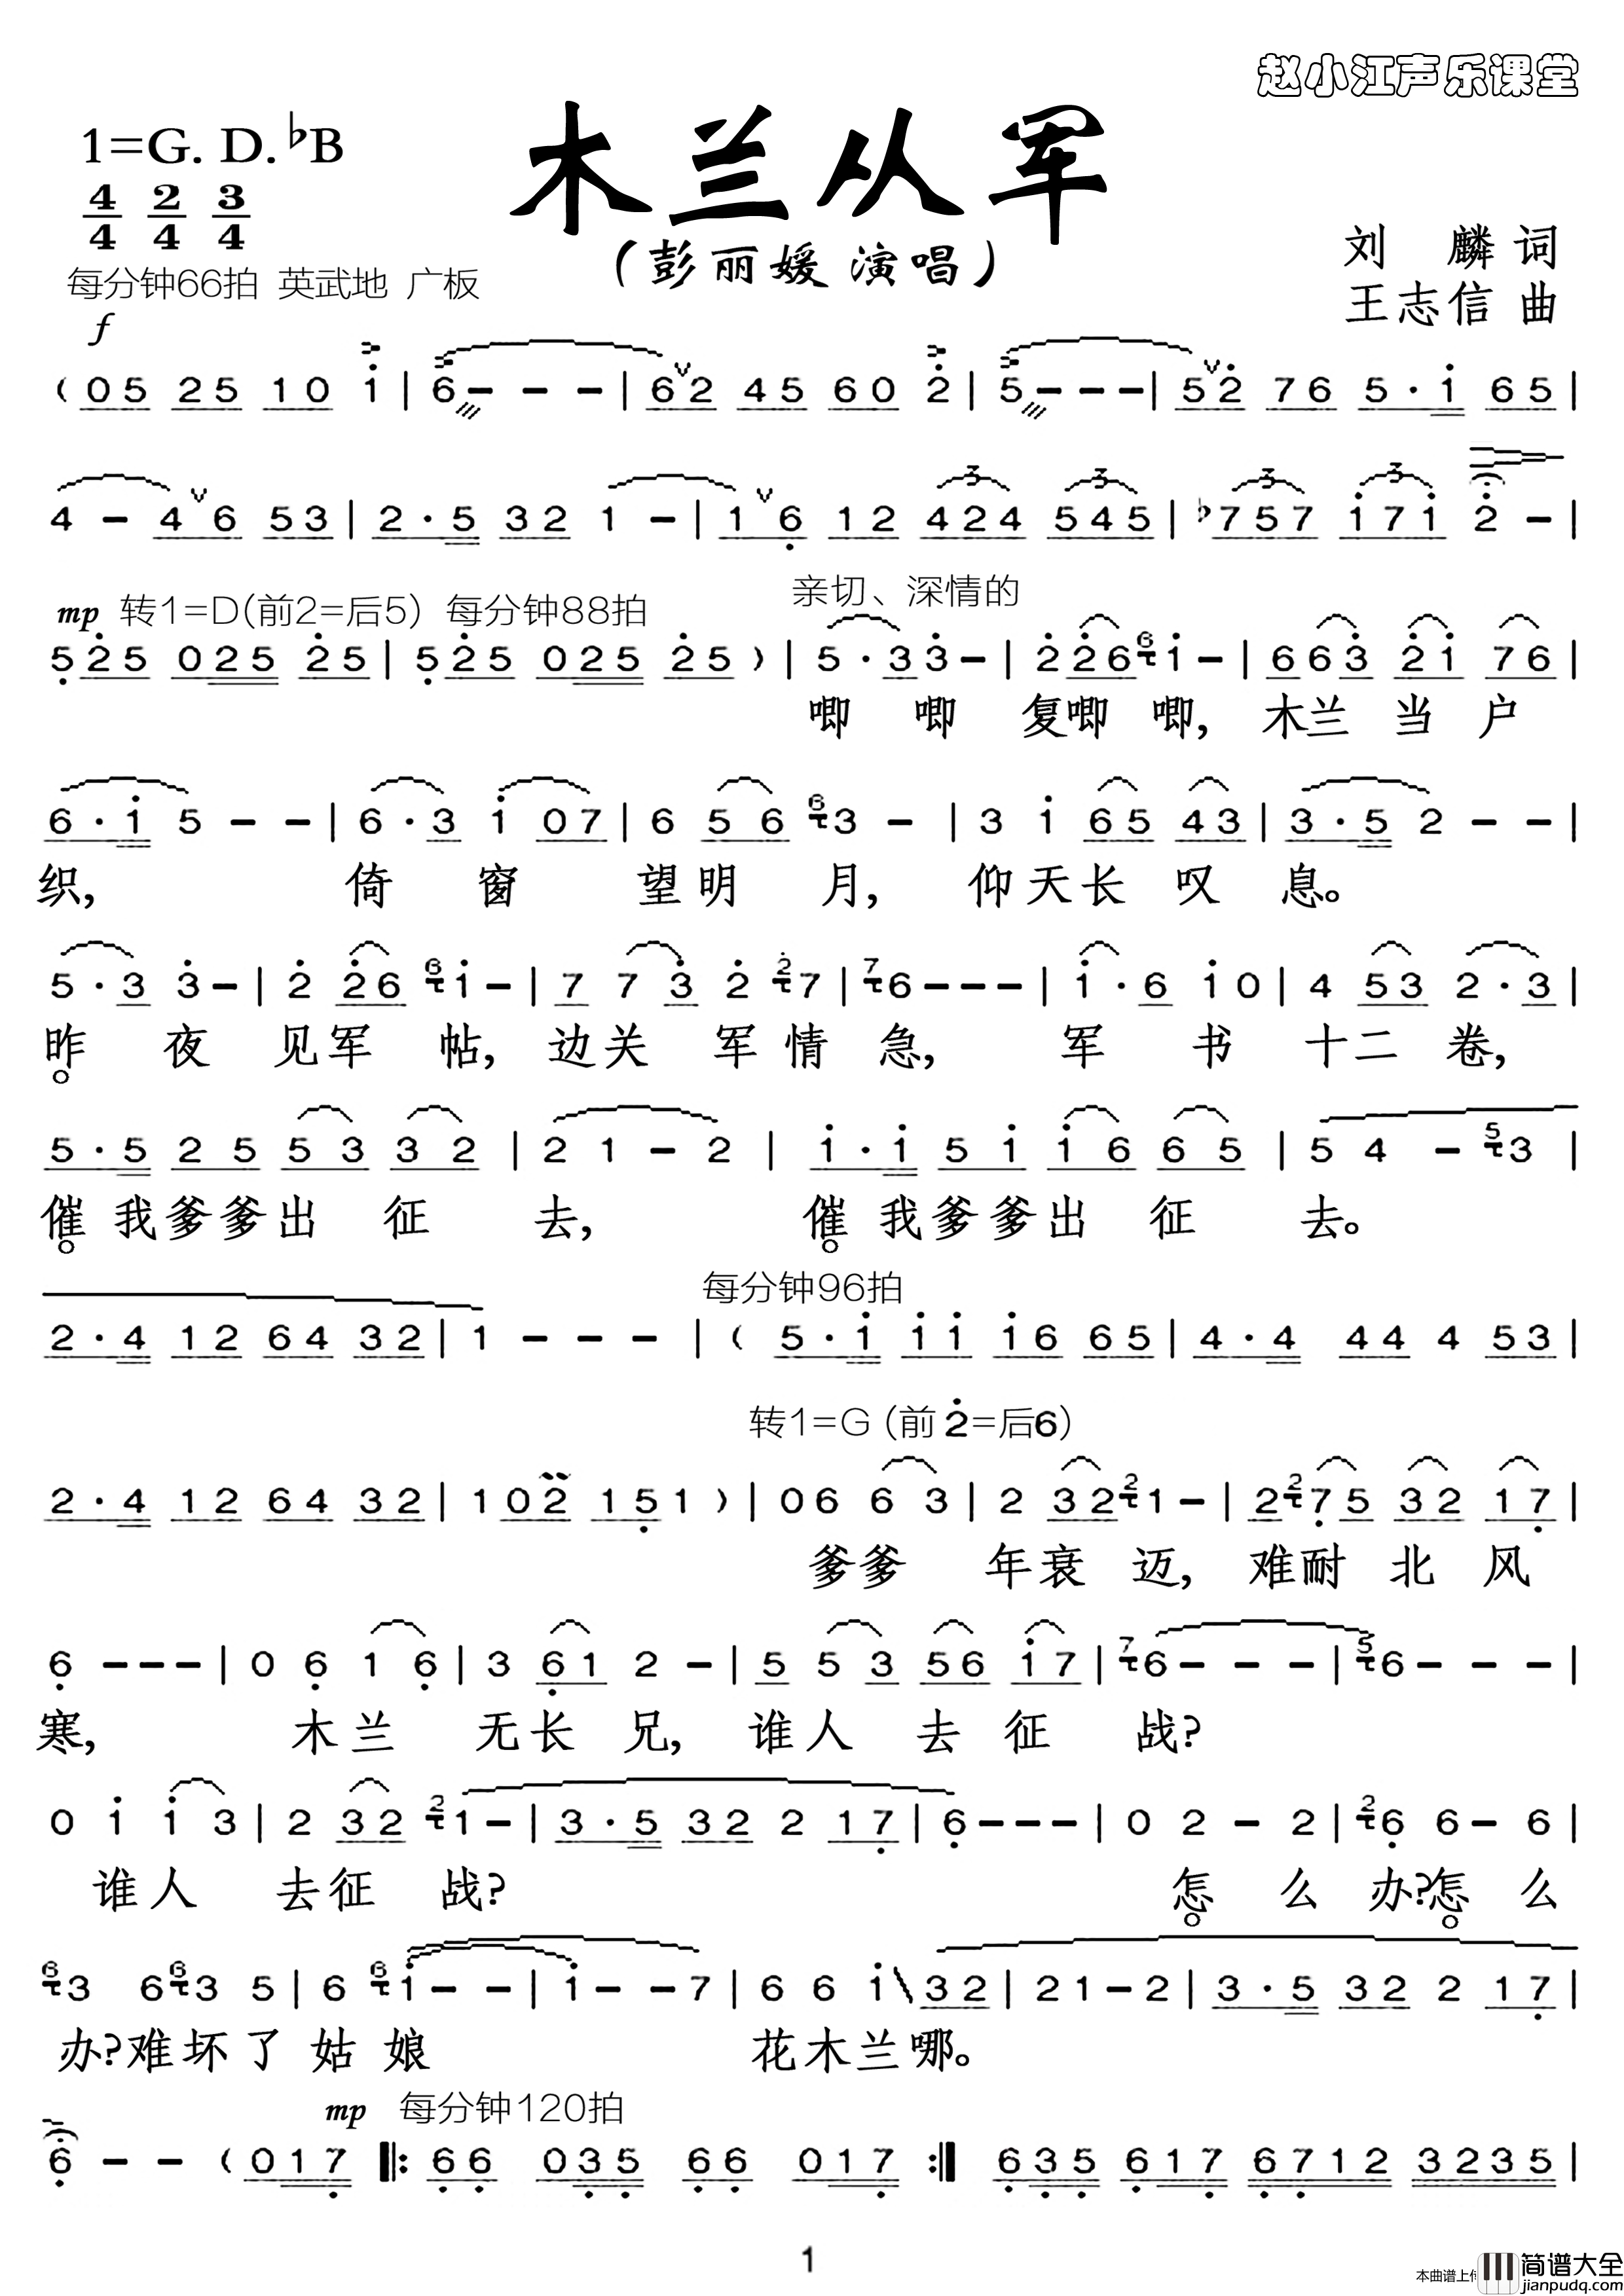 赵小江声乐课堂
1=G. D. ♭B
木兰从军
4/4 2/4 3/4
(彭丽媛 演唱)
刘 麟 词
王志信 曲
每分钟66拍 英武地 广板
f
( 0 5 2 5 1 0 1̇ | 6 - - - | 6 2 4 5 6 0 2̇ | 5 - - - | 5 2̇ 7 6 5 · 1̇ 6 5 |
4 - 4 6 5 3 | 2 · 5 3 2 1 - | 1 6̣ 1 2 4 2 4 5 4 5 | ♭7 5 7 1̇ 7 1̇ 2̇ - |
mp 转1=D(前2=后5) 每分钟88拍 亲切、深情的
5̣ 2̇ 5 0 2 5 2̇ 5 | 5̣ 2̇ 5 0 2 5 2̇ 5 ) | 5 · 3 3̇ - | 2̇ 2̇ 6 6 1̇ - | 6 6 3̇ 2̇ 1̇ 7 6 |
唧 唧 复唧 唧, 木兰 当 户
6 · 1̇ 5 - - | 6 · 3 1̇ 0 7 | 6 5 6 6 3 - | 3 1̇ 6 5 4 3 | 3 · 5 2 - - |
织, 倚 窗 望明 月, 仰天长 叹 息。
5 · 3 3̇ - | 2̇ 2̇ 6 6 1̇ - | 7 7 3̇ 2̇ 2̇ 7 | 7 6 - - - | 1̇ · 6 1̇ 0 | 4 5 3 2 · 3 |
昨 夜 见军 帖, 边关 军 情 急, 军 书 十二 卷,
5 · 5 2 5 5 3 3 2 | 2 1 - 2 | 1̇ · 1̇ 5 1̇ 1̇ 6 6 5 | 5 4 - 5 3 |
催 我爹爹出 征 去, 催 我爹爹出 征 去。
每分钟96拍
2 · 4 1 2 6 4 3 2 | 1 - - - | ( 5 · 1̇ 1̇ 1̇ 1̇ 6 6 5 | 4 · 4 4 4 4 5 3 |
转1=G (前 2̇=后6)
2 · 4 1 2 6 4 3 2 | 1 0 2 1 5̣ 1 ) | 0 6 6 3 | 2 3 2 2 1 - | 2 2 7̣ 5 3 2 1 7̣ |
爹爹 年衰 迈, 难耐 北 风
6̣ - - - | 0 6̣ 1 6̣ | 3 6̣ 1 2 - | 5 5 3 5 6 1̇ 7 | 7 6 - - - | 5 6 - - - |
寒, 木兰 无长 兄, 谁人 去 征 战?
0 1̇ 1̇ 3 | 2 3 2 2 1 - | 3 · 5 3 2 2 1 7̣ | 6̣ - - - | 0 2 - 2 | 2 6̣ 6 - 6 |
谁人 去征 战? 怎 么 办?怎 么
6 3 6 6 3 5 | 6 6 1̇ - - | 1̇ - - 7 | 6 6 1̇ \ 3 2 | 2 1 - 2 | 3 · 5 3 2 2 1 7̣ |
办?难坏了 姑 娘 花木兰哪。
mp 每分钟120拍
6̣ - - ( 0 1 7̣ ‖: 6̣ 6̣ 0 3̣ 5̣ 6̣ 6̣ 0 1 7̣ :‖ 6̣ 3̣ 5̣ 6̣ 1 7̣ 6̣ 7̣ 1 2 3 2 3 5 |
1
本曲谱上传
简谱大全
jianpudq.com